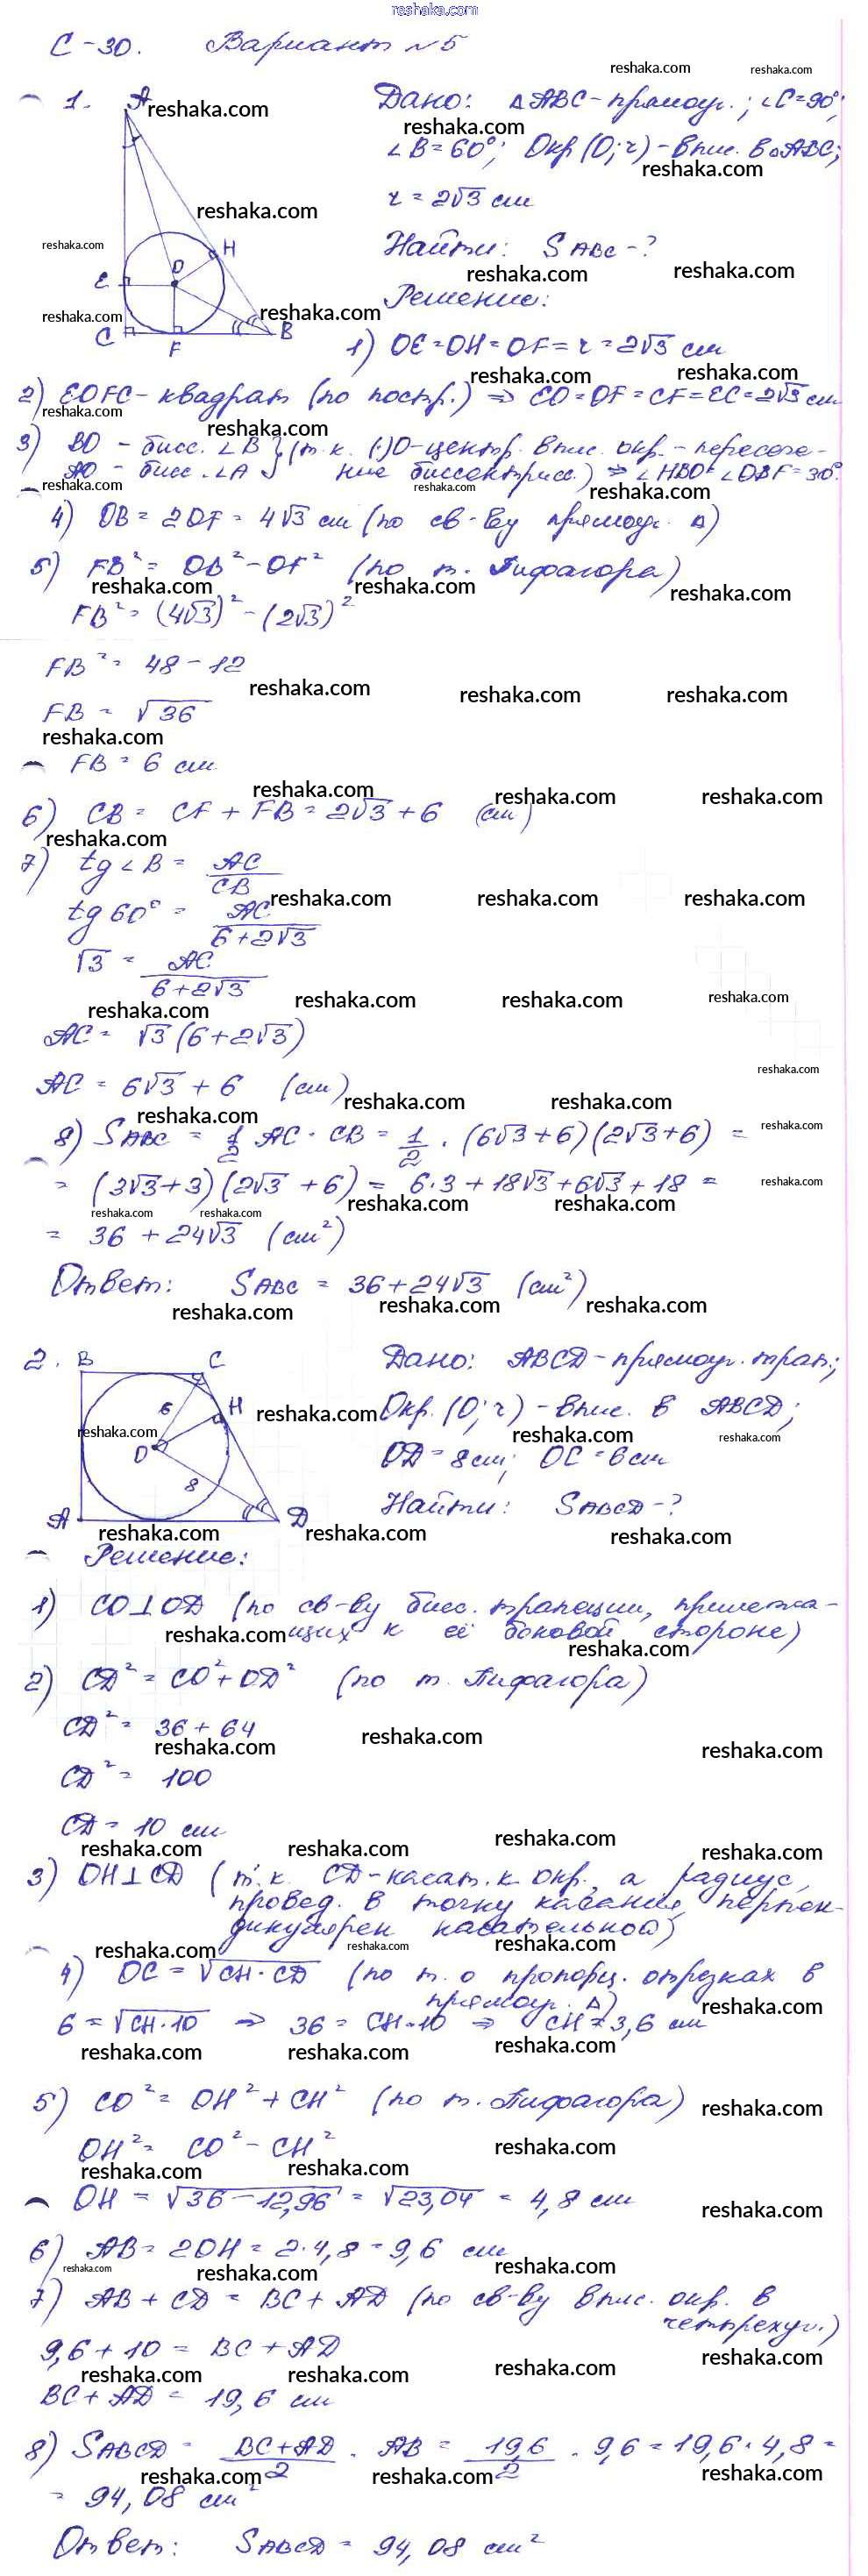 reshaka.com
С-30. Вариант №5
1. Дано: △ABC-прямоуг.; ∠C=90°;
∠B=60°; Окр(O; r)-впис. в △ABC;
r = 2√3 см
Найти: S ABC -?
Решение:
A
H
O
E
C
F
B
1) OE=OH=OF=r=2√3 см
2) EOFC-квадрат (по постр.) ⇒ EO=OF=CF=EC=2√3 см
3) BO - бисс. ∠B } (т.к. (·)O-центр. впис. окр.-пересече-
AO - бисс. ∠A } ние биссектрисс.) ⇒ ∠HBO=∠OBF=30°
4) OB = 2OF = 4√3 см (по св-ву прямоуг. △)
5) FB² = OB² - OF² (по т. Пифагора)
FB² = (4√3)² - (2√3)²
FB² = 48 - 12
FB = √36
FB = 6 см
6) CB = CF + FB = 2√3 + 6 (см)
7) tg ∠B = AC/CB
tg 60° = AC/(6+2√3)
√3 = AC/(6+2√3)
AC = √3 (6+2√3)
AC = 6√3 + 6 (см)
8) S ABC = 1/2 AC · CB = 1/2 · (6√3+6)(2√3+6) =
= (3√3+3)(2√3+6) = 6·3+18√3+6√3+18 =
= 36 + 24√3 (см²)
Ответ: S ABC = 36+24√3 (см²)
2. Дано: ABCD-прямоуг. трап.;
Окр. (O; r)-впис. в ABCD;
OD=8см; OC=6см
Найти: S ABCD -?
B
C
6
H
O
8
A
D
Решение:
1) CO⊥OD (по св-ву бисс. трапеции, прилежа-
щих к её боковой стороне)
2) CD² = CO² + OD² (по т. Пифагора)
CD² = 36 + 64
CD² = 100
CD = 10 см
3) OH⊥CD (т.к. CD-касат. к окр., а радиус,
провед. в точку касания, перпен-
дикулярен касательной)
4) OC = √CH·CD (по т. о пропорц. отрезках в
прямоуг. △)
6 = √CH·10 ⇒ 36 = CH·10 ⇒ CH = 3,6 см
5) CO² = OH² + CH² (по т. Пифагора)
OH² = CO² - CH²
OH = √36-12,96 = √23,04 = 4,8 см
6) AB = 2OH = 2·4,8 = 9,6 см
7) AB + CD = BC + AD (по св-ву впис. окр. в
четырехуг.)
9,6 + 10 = BC + AD
BC + AD = 19,6 см
8) S ABCD = (BC+AD)/2 · AB = 19,6/2 · 9,6 = 19,6·4,8 =
= 94,08 см²
Ответ: S ABCD = 94,08 см²